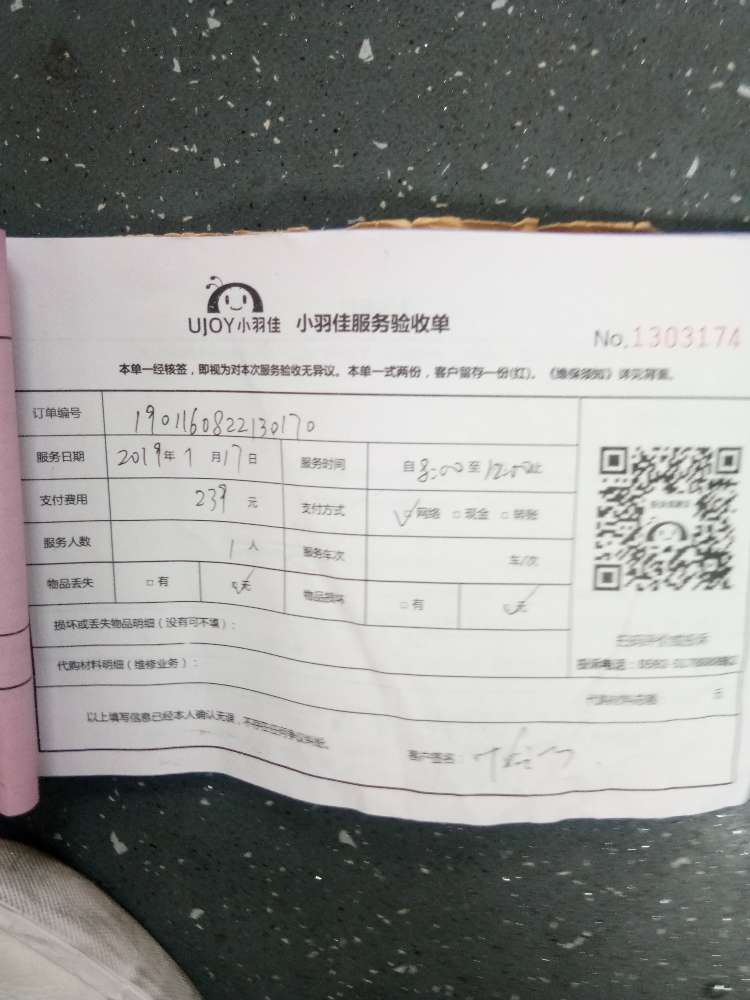 UJOY小羽佳 小羽佳服务验收单
No.1303174
本单一经核签，即视为对本次服务验收无异议。本单一式两份，客户留存一份(红)。《维保须知》详见背面。
订单编号 1901160822130170
服务日期 2019年1月17日 服务时间 自8:00至12:00止
支付费用 239元 支付方式 ☑网络 □现金 □转账
服务人数 1人 服务车次 车/次
物品丢失 □有 ☑无 物品损坏 □有 ☑无
扫码评价或投诉
损坏或丢失物品明细（没有可不填）：
投诉电话：
代购材料明细（维修业务）：
代购材料总额： 元
以上填写信息已经本人确认无误，不存在任何争议纠纷。 客户签名：